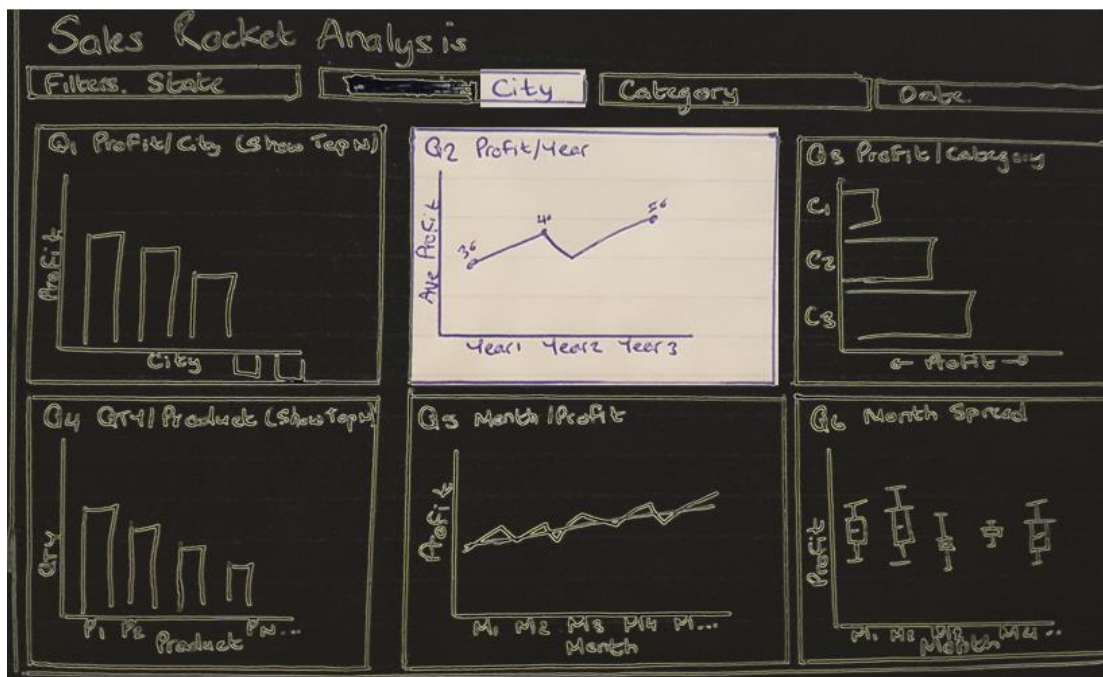 Sales Rocket Analysis
Filters. State
City
Category
Date.
Q1 Profit/City (Show Top N)
Profit
City
Q2 Profit/Year
Ave Profit
36
40
Year1 Year2 Year3
Q3 Profit/Category
C1
C2
C3
← Profit →
Q4 QTY/Product (Show Top N)
QTY
P1 P2 PN...
Product
Q5 Month/Profit
Profit
M1 M2 M3 M4 M...
Month
Q6 Month Spread
Profit
M1 M2 M3 M4 ..
Month